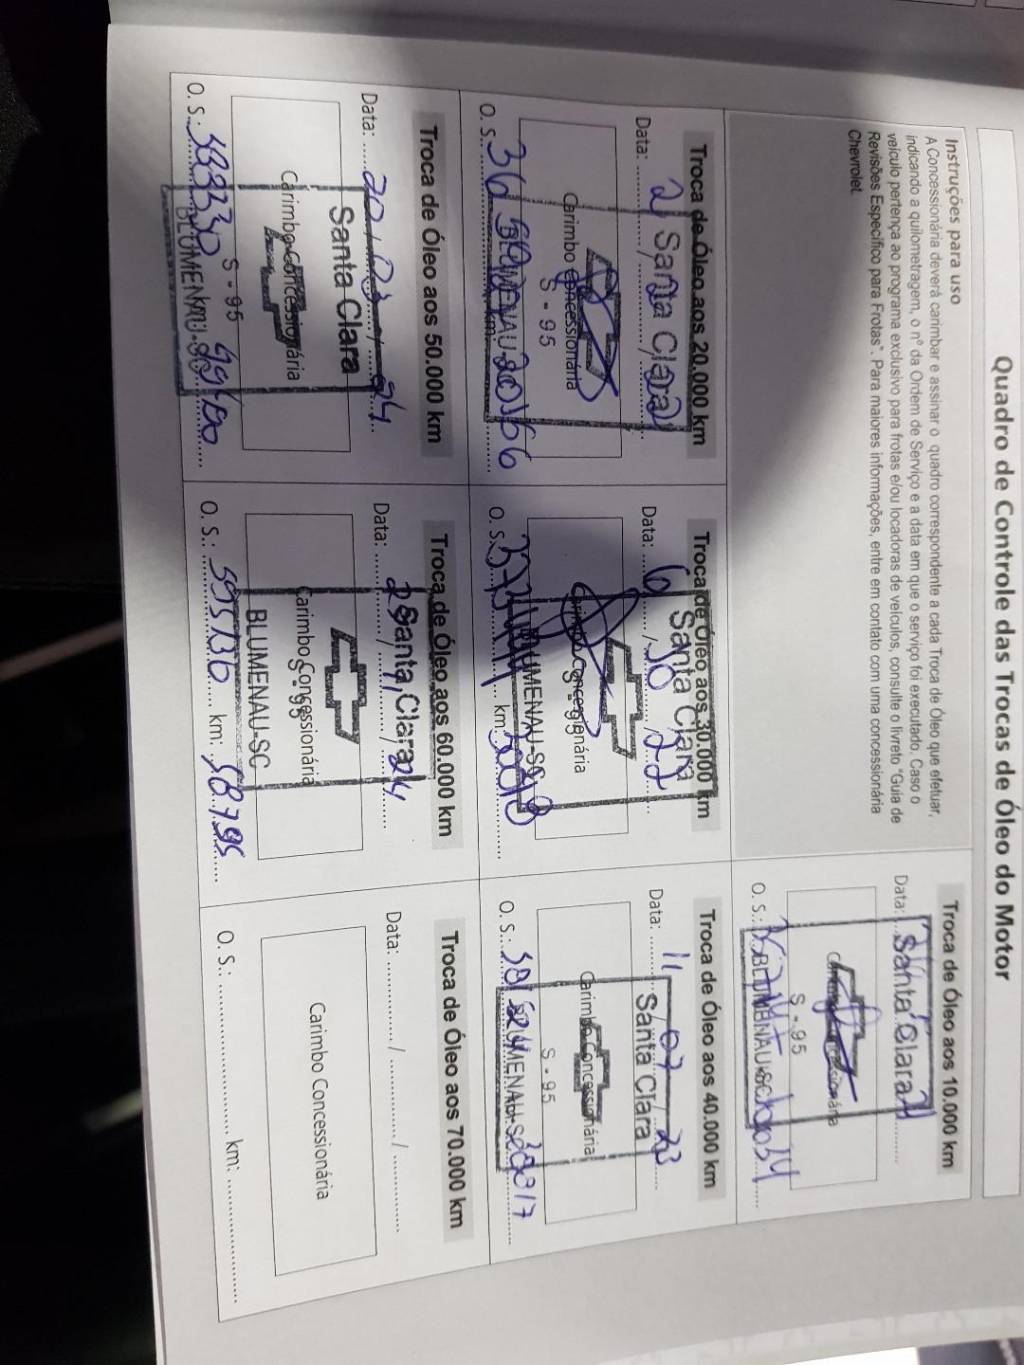 Quadro de Controle das Trocas de Óleo do Motor
Instruções para uso
A Concessionária deverá carimbar e assinar o quadro correspondente a cada Troca de Óleo que efetuar,
indicando a quilometragem, o nº da Ordem de Serviço e a data em que o serviço foi executado. Caso o
veículo pertença ao programa exclusivo para frotas e/ou locadoras de veículos, consulte o livreto "Guia de
Revisões Específico para Frotas". Para maiores informações, entre em contato com uma concessionária
Chevrolet.
Troca de Óleo aos 10.000 km
Data:
Santa Clara
Carimbo Concessionária
S - 95
O. S.:
BLUMENAU-SC
Troca de Óleo aos 20.000 km
Data:
Santa Clara
Carimbo Concessionária
S - 95
O. S.:
BLUMENAU
km:
Troca de Óleo aos 30.000 km
Data:
Santa Clara
Carimbo Concessionária
S - 95
O. S.:
BLUMENAU-SC
km:
Troca de Óleo aos 40.000 km
Data: 11 / 07 / 23
Santa Clara
Carimbo Concessionária
S - 95
O. S.:
BLUMENAU-SC
Troca de Óleo aos 50.000 km
Data: 20 / 03 / 24
Santa Clara
Carimbo Concessionária
S - 95
O. S.:
BLUMENAU-SC
Troca de Óleo aos 60.000 km
Data:
Santa Clara
Carimbo Concessionária
S - 95
BLUMENAU-SC
O. S.: km: 58.795
Troca de Óleo aos 70.000 km
Data: / /
Carimbo Concessionária
O. S.: km: